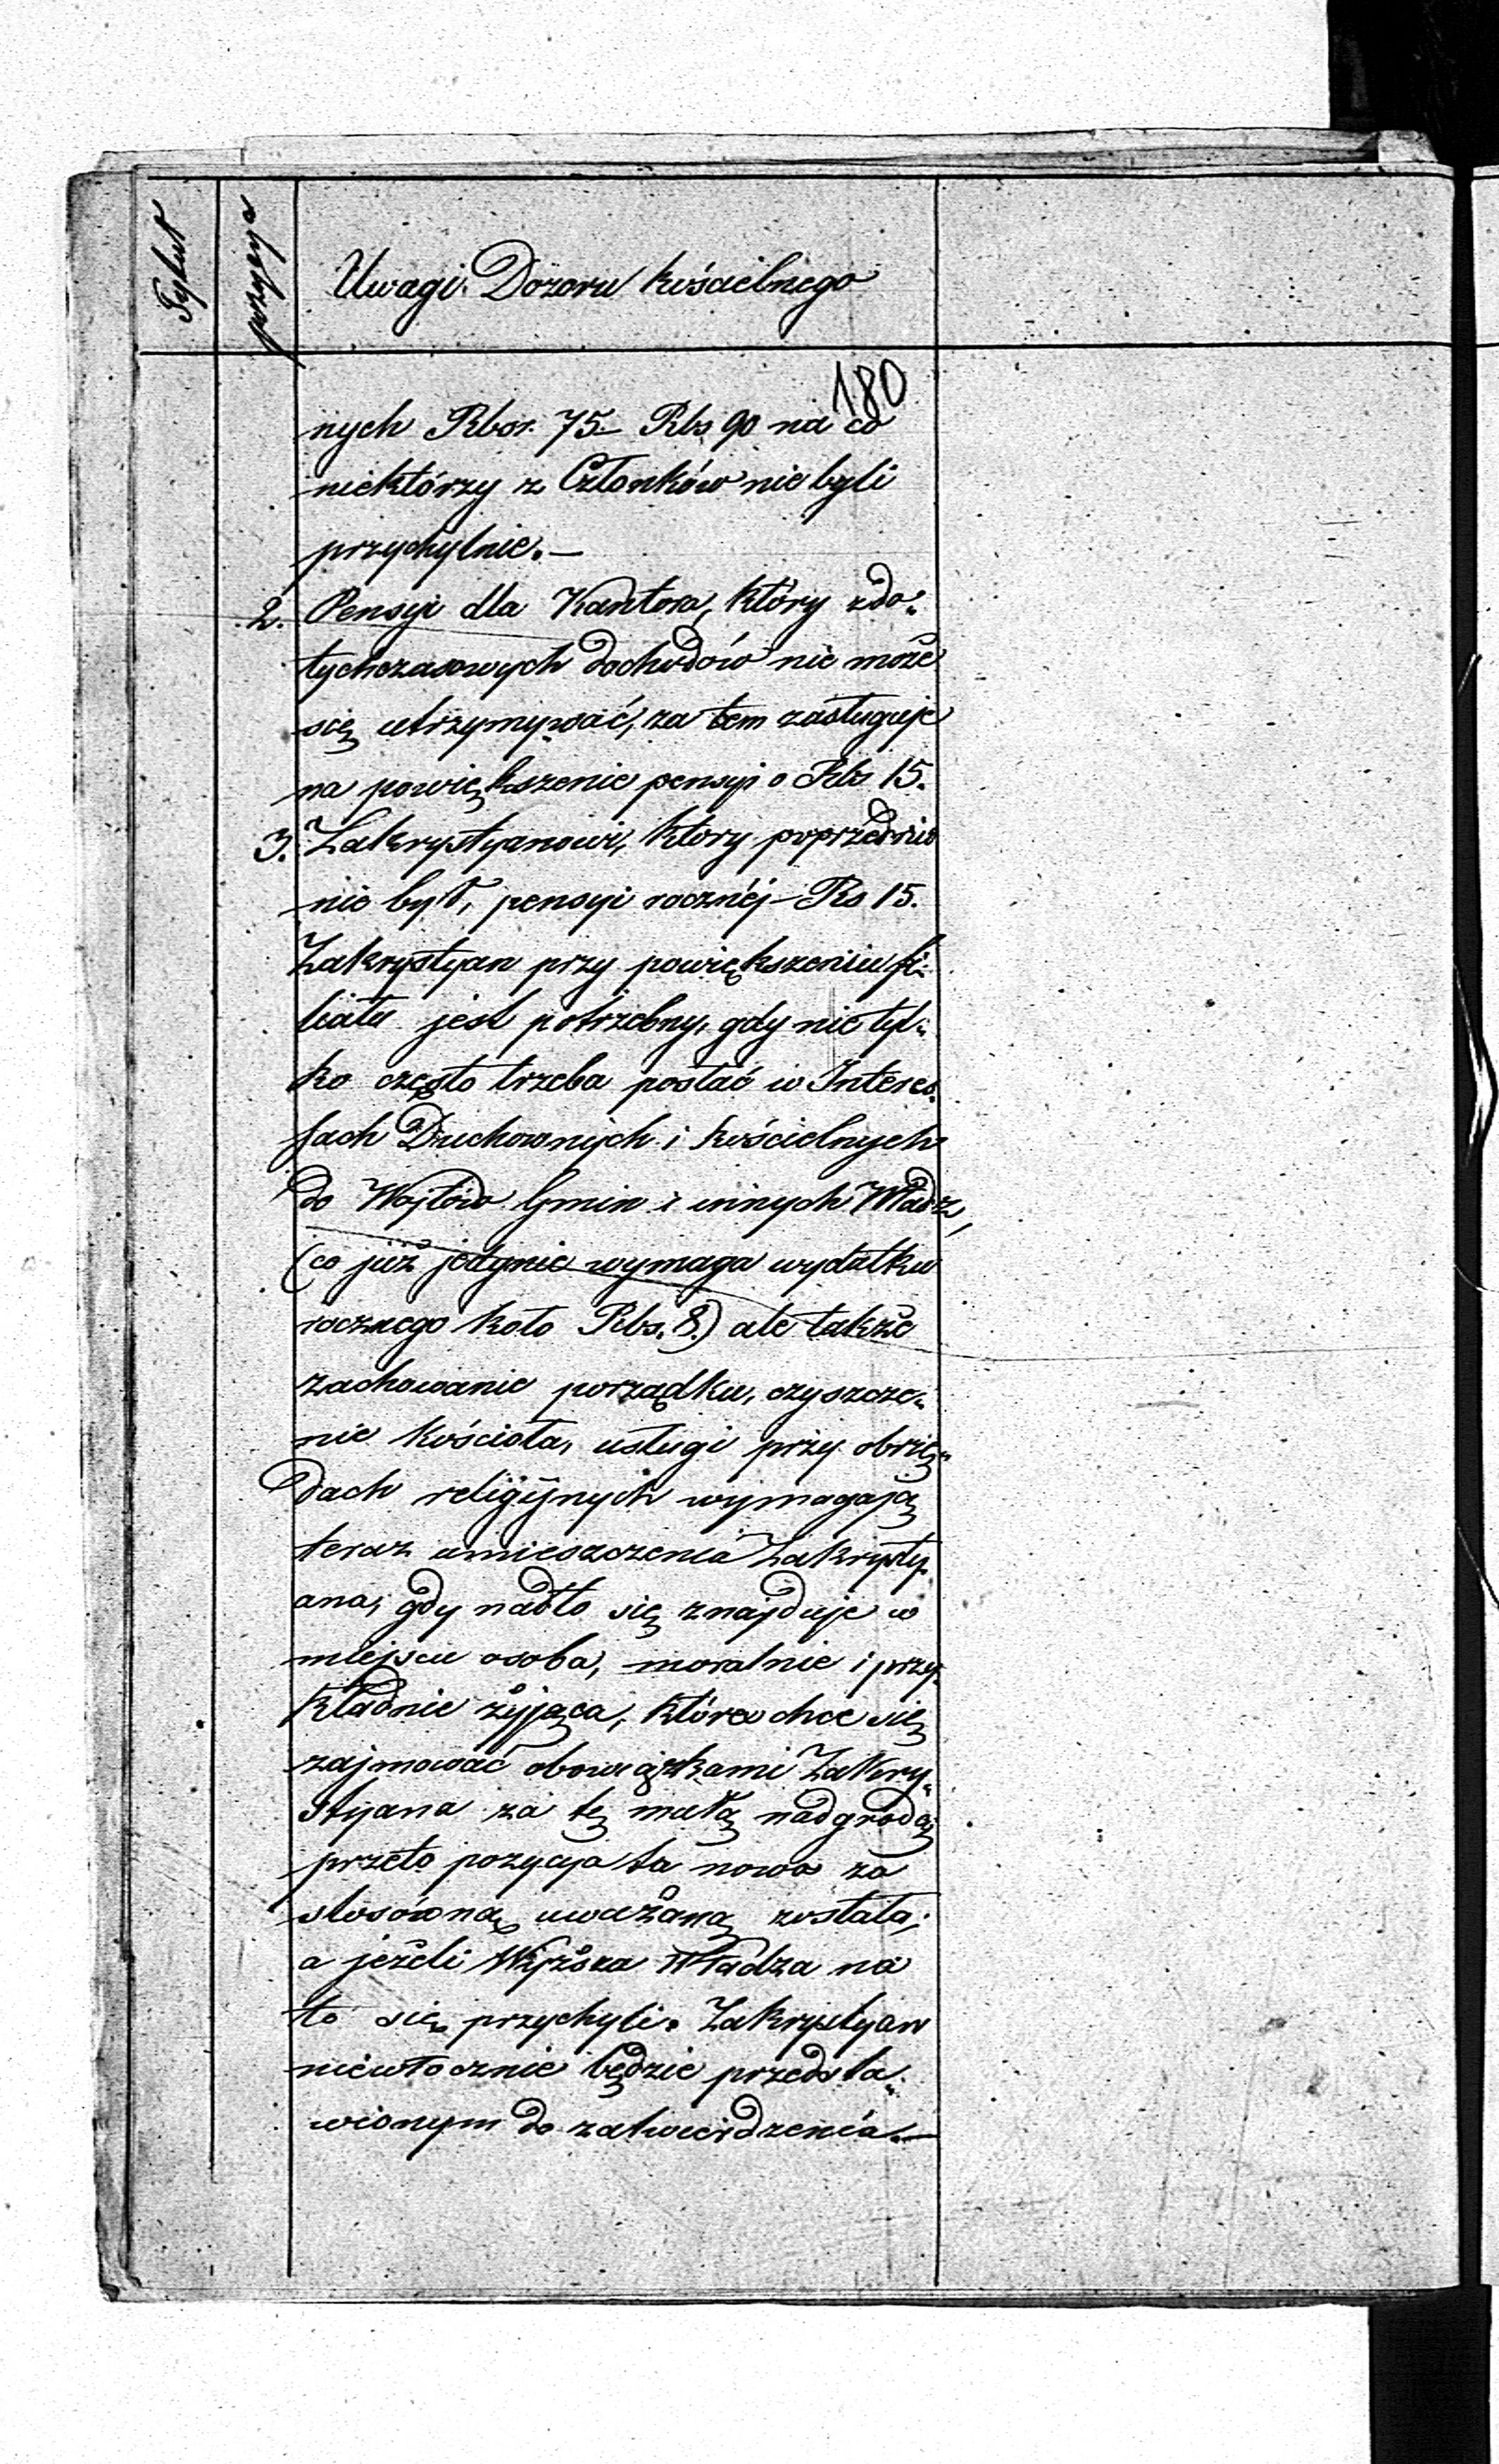 Tytuł
pozycya
Uwagi Dozoru kościelnego
180
nych Rbsr. 75 – Rbs 90 na co
niektórzy z Członków nie byli
przychylnie. –
2. Pensyi dla Kantora, który zdo„
tychczasowych dochodów nie może
się utrzymywać, za tem zasługuje
na powiększenie pensyi o Rbs 15.
3. Zakrystyanowi, który poprzednio
nie był, pensyi rocznéj – Rs 15.
Zakrystyan przy powiększeniu fi„
liału jest potrzebny, gdy nie tyl„
ko często trzeba posłać w Interes„
sach Duchownych i kościelnych
do Wojtów Gmin i innych Władz,
(co już jedynie wymaga wydatku
rocznego koło Rbs. 8.) ale także
zachowanie porządku, czyszcze„
nie kościoła, usługi przy obrzę„
dach religijnych wymagają
teraz umieszczenia Zakrysty„
ana, gdy nadto się znajduje w
miejscu osoba, moralnie i przy„
kładnie żyjąca, która chce się
zajmować obowiązkami Zakry„
styana za tę małą nadgrodą
przeto pozycyja ta nowa za
stosówną uważaną została;
a jeżeli Wyższa Władza na
to się przychyli. Zakrystyan
niewłocznie będzie przedsta„
wionym do zatwierdzenia. –